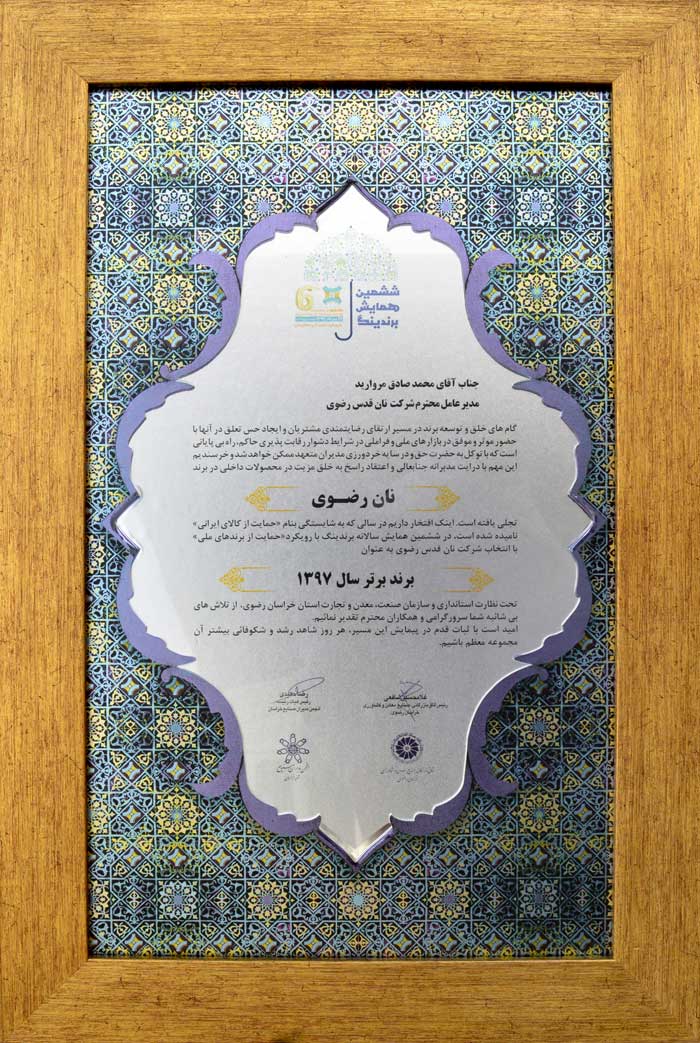 ششمین
همایش
برندینگ
6
جناب آقای محمد صادق مروارید
مدیر عامل محترم شرکت نان قدس رضوی
گام های خلق و توسعه برند در مسیر ارتقای رضایتمندی مشتریان و ایجاد حس تعلق در آنها با
حضور موثر و موفق در بازارهای ملی و فراملی در شرایط دشوار رقابت پذیری حاکم، راه بی پایانی
است که با توکل به حضرت حق و در سایه خردورزی مدیران متعهد ممکن خواهد شد و خرسندیم
این مهم با درایت مدیرانه جنابعالی و اعتقاد راسخ به خلق مزیت در محصولات داخلی در برند
نان رضـوی
تجلی یافته است. اینک افتخار داریم در سالی که به شایستگی بنام «حمایت از کالای ایرانی»
نامیده شده است، در ششمین همایش سالانه برندینگ با رویکرد «حمایت از برندهای ملی»
با انتخاب شرکت نان قدس رضوی به عنوان
برند برتر سال ۱۳۹۷
تحت نظارت استانداری و سازمان صنعت، معدن و تجارت استان خراسان رضوی، از تلاش های
بی شائبه شما سرور گرامی و همکاران محترم تقدیر نمائیم.
امید است با ثبات قدم در پیمایش این مسیر، هر روز شاهد رشد و شکوفائی بیشتر آن
مجموعه معظم باشیم.
غلامحسین شافعی
رئیس اتاق بازرگانی، صنایع، معادن و کشاورزی
خراسان رضوی
رضا حمیدی
رئیس هیات رئیسه
انجمن مدیران صنایع خراسان